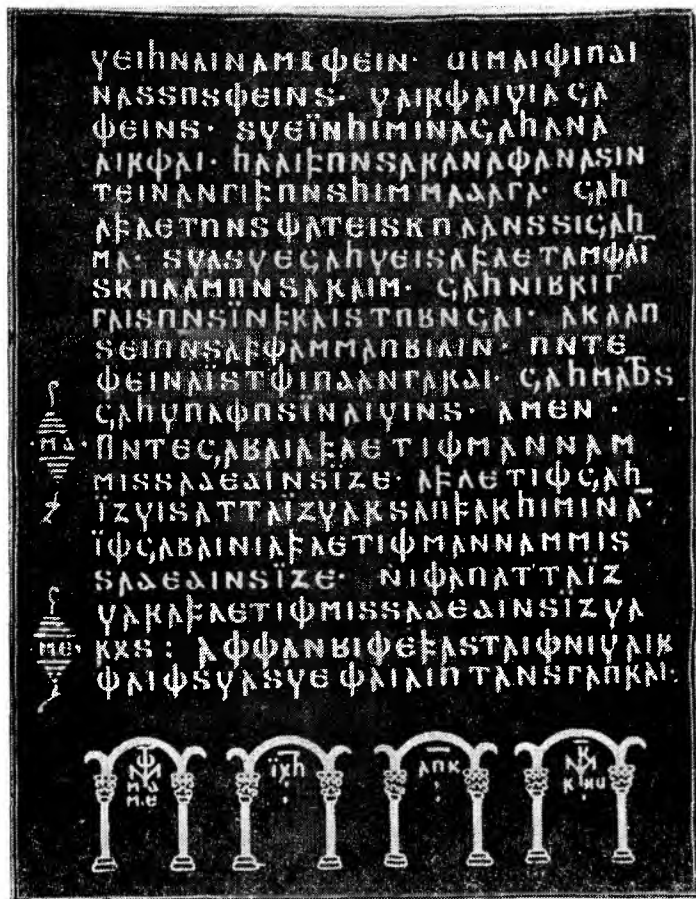 𐍅𐌴𐌹𐌷𐌽𐌰𐌹𐌽𐌰𐌼𐍉𐌸𐌴𐌹𐌽· 𐌵𐌹𐌼𐌰𐌹𐌸𐌹𐌿𐌳𐌹
𐌽𐌰𐍃𐍃𐌿𐍃𐌸𐌴𐌹𐌽𐍃· 𐍅𐌰𐌹𐍂𐌸𐌰𐌹𐍅𐌹𐌻𐌾𐌰
𐌸𐌴𐌹𐌽𐍃· 𐍃𐍅𐌴𐌹̈𐌽𐌷𐌹𐌼𐌹𐌽𐌰𐌾𐌰𐌷𐌰𐌽𐌰
𐌰𐌹𐍂𐌸𐌰𐌹· 𐌷𐌻𐌰𐌹𐍆𐌿𐌽𐍃𐌰𐍂𐌰𐌽𐌰𐌸𐌰𐌽𐌰𐍃𐌹𐌽
𐍄𐌴𐌹𐌽𐌰𐌽𐌲𐌹𐍆𐌿𐌽𐍃𐌷𐌹𐌼𐌼𐌰𐌳𐌰𐌲𐌰· 𐌾𐌰𐌷
𐌰𐍆𐌻𐌴𐍄𐌿𐌽𐍃𐌸𐌰𐍄𐌴𐌹𐍃𐌺𐌿𐌻𐌰𐌽𐍃𐍃𐌹𐌾𐌰𐌹
𐌼𐌰· 𐍃𐍅𐌰𐍃𐍅𐌴𐌾𐌰𐌷𐍅𐌴𐌹𐍃𐌰𐍆𐌻𐌴𐍄𐌰𐌼𐌸𐌰𐌹̅
𐍃𐌺𐌿𐌻𐌰𐌼𐌿𐌽𐍃𐌰𐍂𐌰𐌹𐌼· 𐌾𐌰𐌷𐌽𐌹𐌱𐍂𐌹𐌲
𐌲𐌰𐌹𐍃𐌿𐌽𐍃𐌹̈𐌽𐍆𐍂𐌰𐌹𐍃𐍄𐌿𐌱𐌽𐌾𐌰𐌹· 𐌰𐌺𐌻𐌰𐌿
𐍃𐌴𐌹𐌿𐌽𐍃𐌰𐍆𐌸𐌰𐌼𐌼𐌰𐌿𐌱𐌹𐌻𐌹𐌽· 𐌿𐌽𐍄𐌴
𐌸𐌴𐌹𐌽𐌰𐌹̈𐍃𐍄𐌸𐌹𐌿𐌳𐌰𐌽𐌲𐌰𐍂𐌳𐌹· 𐌾𐌰𐌷𐌼𐌰𐌷𐍄𐍃
𐌾𐌰𐌷𐍅𐌿𐌻𐌸𐌿𐍃𐌹̈𐌽𐌰𐌹𐍅𐌹𐌽𐍃· 𐌰𐌼𐌴𐌽·
·𐌼𐌳· 𐌿𐌽𐍄𐌴𐌾𐌰𐌱𐌰𐌹𐌰𐍆𐌻𐌴𐍄𐌹𐌸𐌼𐌰𐌽𐌽𐌰𐌼
𐌼𐌹𐍃𐍃𐌰𐌳𐌴𐌳𐌹𐌽𐍃𐌹̈𐌶𐌴· 𐌰𐍆𐌻𐌴𐍄𐌹𐌸𐌾𐌰𐌷
𐌹̈𐌶𐍅𐌹𐍃𐌰𐍄𐍄𐌰𐌹̈𐌶𐍅𐌰𐍂𐍃𐌰𐌿𐍆𐌰𐍂𐌷𐌹𐌼𐌹𐌽𐌰̅·
𐌹̈𐌸𐌾𐌰𐌱𐌰𐌹𐌽𐌹𐌰𐍆𐌻𐌴𐍄𐌹𐌸𐌼𐌰𐌽𐌽𐌰𐌼𐌼𐌹𐍃
𐍃𐌰𐌳𐌴𐌳𐌹𐌽𐍃𐌹̈𐌶𐌴· 𐌽𐌹𐌸𐌰𐌿𐌰𐍄𐍄𐌰𐌹̈𐌶
𐍅𐌰𐍂𐌰𐍆𐌻𐌴𐍄𐌹𐌸𐌼𐌹𐍃𐍃𐌰𐌳𐌴𐌳𐌹𐌽𐍃𐌹̈𐌶𐍅𐌰
·𐌼𐌴· 𐍂𐍉𐍃: 𐌰𐌸𐌸𐌰𐌽𐌱𐌹𐌸𐌴𐍆𐌰𐍃𐍄𐌰𐌹𐌸𐌽𐌹𐍅𐌰𐌹𐍂
𐌸𐌰𐌹𐌸𐍃𐍅𐌰𐍃𐍅𐌴𐌸𐌰𐌹𐌻𐌹𐌿𐍄𐌰𐌽𐍃𐌲𐌰𐌿𐍂𐌰𐌹·
𐌼𐌳 𐌹̈𐍉𐌷 𐌻𐌿𐌺
𐌼·𐌴